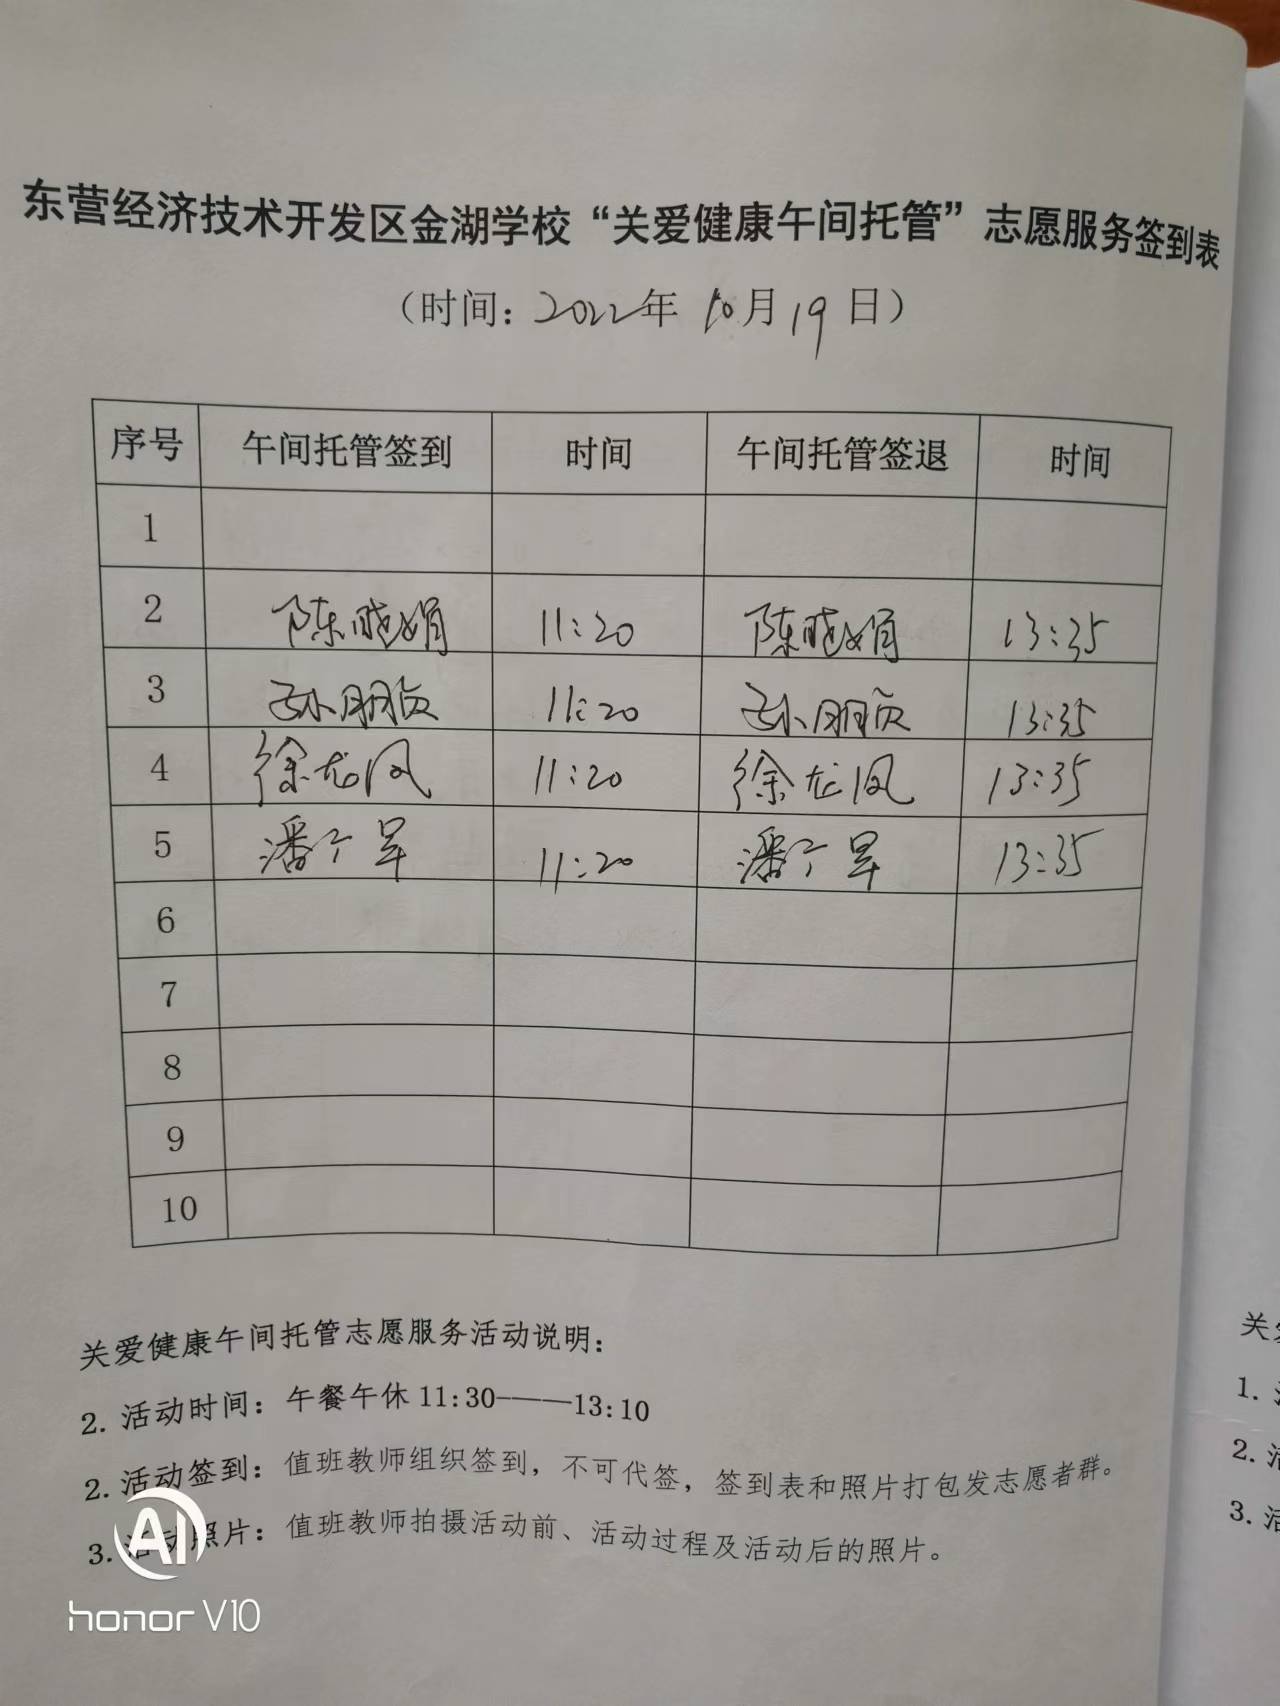 东营经济技术开发区金湖学校“关爱健康午间托管”志愿服务签到表
（时间：2022年 10月19日）
序号 午间托管签到 时间 午间托管签退 时间
1
2 陈晓娟 11:20 陈晓娟 13:35
3 孙朋贞 11:20 孙朋贞 13:35
4 徐龙凤 11:20 徐龙凤 13:35
5 潘 11:20 潘 13:35
6
7
8
9
10
关爱健康午间托管志愿服务活动说明：
2. 活动时间：午餐午休 11:30——13:10
2. 活动签到：值班教师组织签到，不可代签，签到表和照片打包发志愿者群。
3. 活动照片：值班教师拍摄活动前、活动过程及活动后的照片。
AI
honor V10
关
1.
2. 活
3. 活